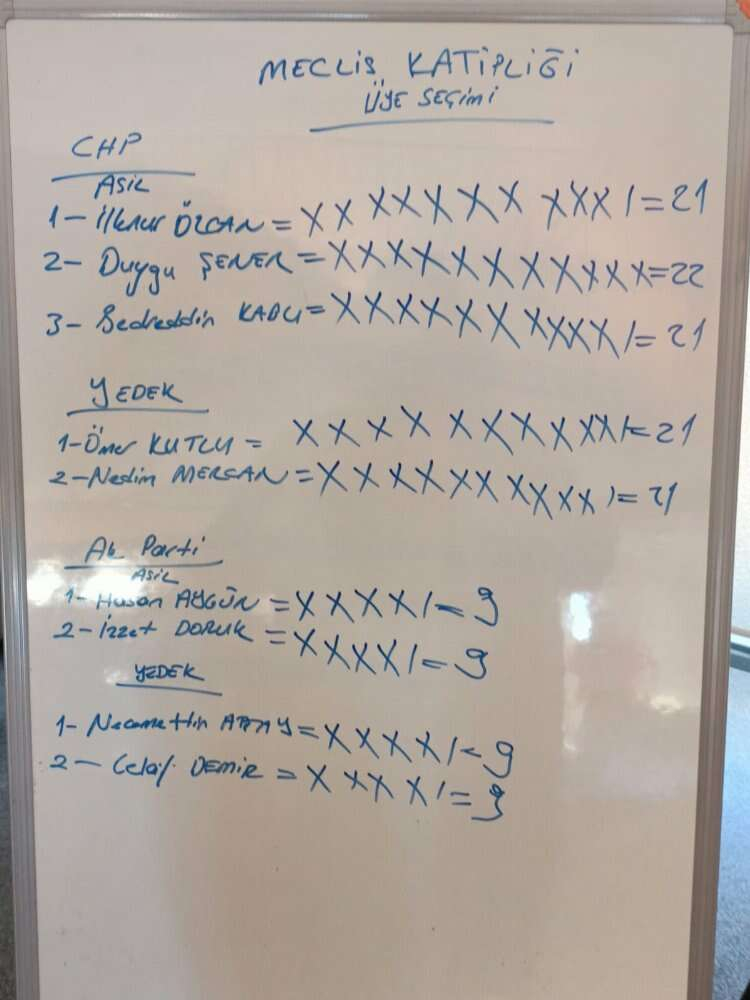 MECLİS KATİPLİĞİ
ÜYE SEÇİMİ
CHP
ASİL
1- İlknur ÖZCAN = X X X X X X X X X X / = 21
2- Duygu ŞENER = X X X X X X X X X X X = 22
3- Bedreddin KADLI = X X X X X X X X X X / = 21
YEDEK
1- Ömer KUTLU = X X X X X X X X X X / = 21
2- Nedim MERCAN = X X X X X X X X X X / = 21
Ak Parti
ASİL
1- Hasan AYGÜN = X X X X / = 9
2- İzzet DORUK = X X X X / = 9
YEDEK
1- Necmettin ABAY = X X X X / = 9
2- Celal DEMİR = X X X X / = 9